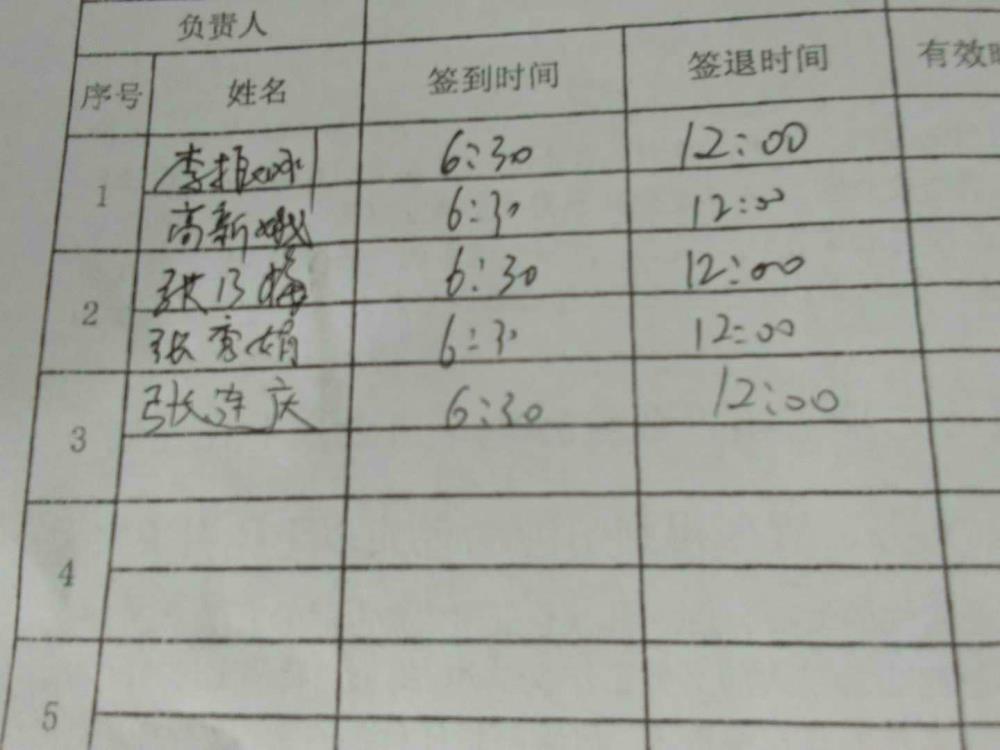 负责人
序号 姓名 签到时间 签退时间 有效
1 李 6:30 12:00
高新娥 6:30 12:00
2 张乃梅 6:30 12:00
张秀娟 6:30 12:00
3 张连庆 6:30 12:00
4
5